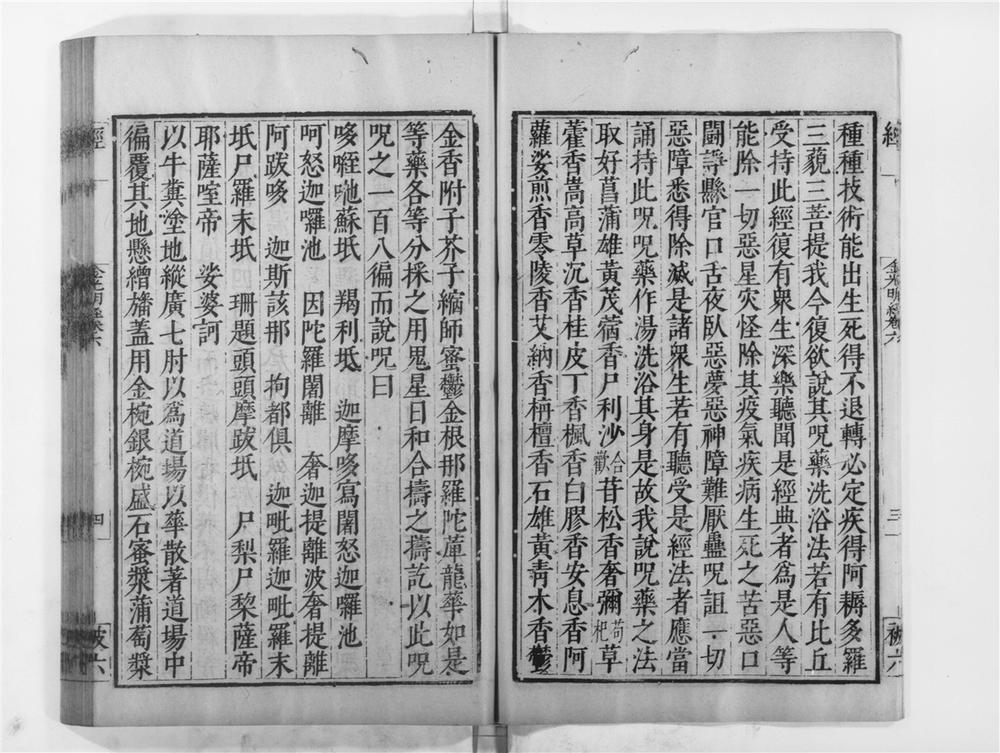 經
金光明經卷六
三
被六
種種技術能出生死得不退轉必定疾得阿耨多羅
三藐三菩提我今復欲說其呪藥洗浴法若有比丘
受持此經復有衆生深樂聽聞是經典者爲是人等
能除一切惡星灾怪除其疫氣疾病生死之苦惡口
鬪諍縣官口舌夜臥惡夢惡神障難厭蠱呪詛一切
惡障悉得除滅是諸衆生若有聽受是經法者應當
誦持此呪呪藥作湯洗浴其身是故我說呪藥之法
取好菖蒲雄黃茂蓿香尸利沙合歡苷松香奢彌苟杞草
藿香嵩高草沉香桂皮丁香楓香白膠香安息香阿
蘿娑煎香零陵香艾納香栴檀香石雄黃青木香鬱
金香附子芥子縮師蜜鬱金根那羅陀𦼮龍華如是
等藥各等分採之用鬼星日和合擣之擣訖以此呪
呪之一百八徧而說呪曰
哆㗌吔蘇坻 羯利坻 迦摩哆寫闍怒迦囉池
呵怒迦囉池 因陀羅闍離 奢迦提離波奢提離
阿跋哆 迦斯該那 拘都俱 迦毗羅迦毗羅末
坻尸羅末坻 珊題頭頭摩跋坻 尸梨尸棃薩帝
耶薩㗌帝 娑婆訶
以牛糞塗地縱廣七肘以爲道場以華散著道場中
徧覆其地懸繒旛蓋用金椀銀椀盛石蜜漿蒲萄漿
經
金光明經卷六
四
被六